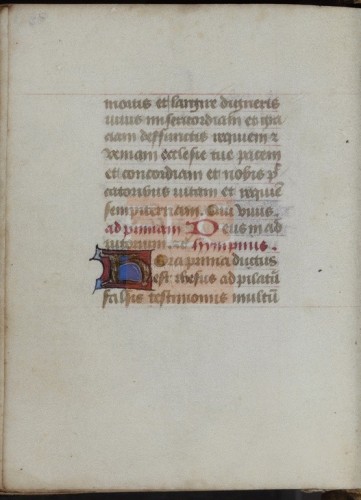 mortis et largire digneris
vivis misericordiam et gra
ciam deffunctis requiem et
veniam ecclesie tue pacem
et concordiam et nobis pec
catoribus vitam et requie
sempiternam. Qui vivis.
ad primam Deus in ad
iutorium. ympnus.
Hora prima ductus
est ihesus ad pilatū
falsis testimoniis multū